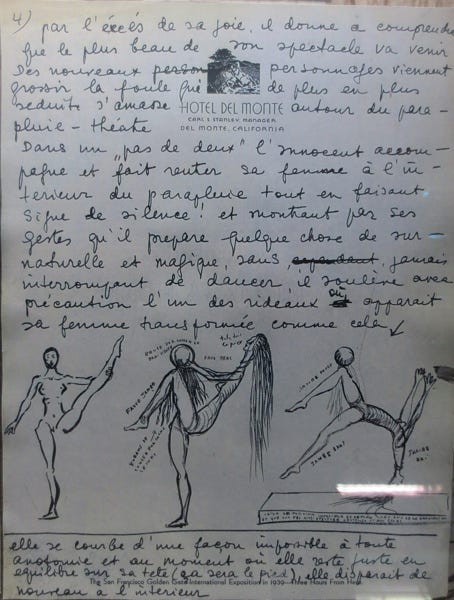 4) par l'éxcés de sa joie, il donne a comprendre
que le plus beau de son spectacle va venir
Des nouveaux person personnages viennent
grossir la foule qui de plus en plus
seduite s'amasse autour du para-
pluie - théatre
HOTEL DEL MONTE
CARL S. STANLEY, MANAGER
DEL MONTE, CALIFORNIA
Dans un "pas de deux" l'innocent accom-
pagne et fait rentrer sa famme à l'in-
terieur du parapluie tout en faisant
signe de silence! et montrant par ses
gestes qu'il prepare quelque chose de sur-
naturelle et magique, sans, cependant, jamais
interrompant de dancer, il soulève avec
précaution l'un des rideaux où apparait
sa femme transformée comme cela
FAUX BRAS
FAUSSE JAMBE
JAMBE
elle se courbe d'une façon imposible à toute
anatomie et au moment où elle reste juste en
equilibre sur sa tete (ça sera le pied), elle disparait de
nouveau a l'interieur
The San Francisco Golden Gate International Exposition in 1939—Three Hours From Here